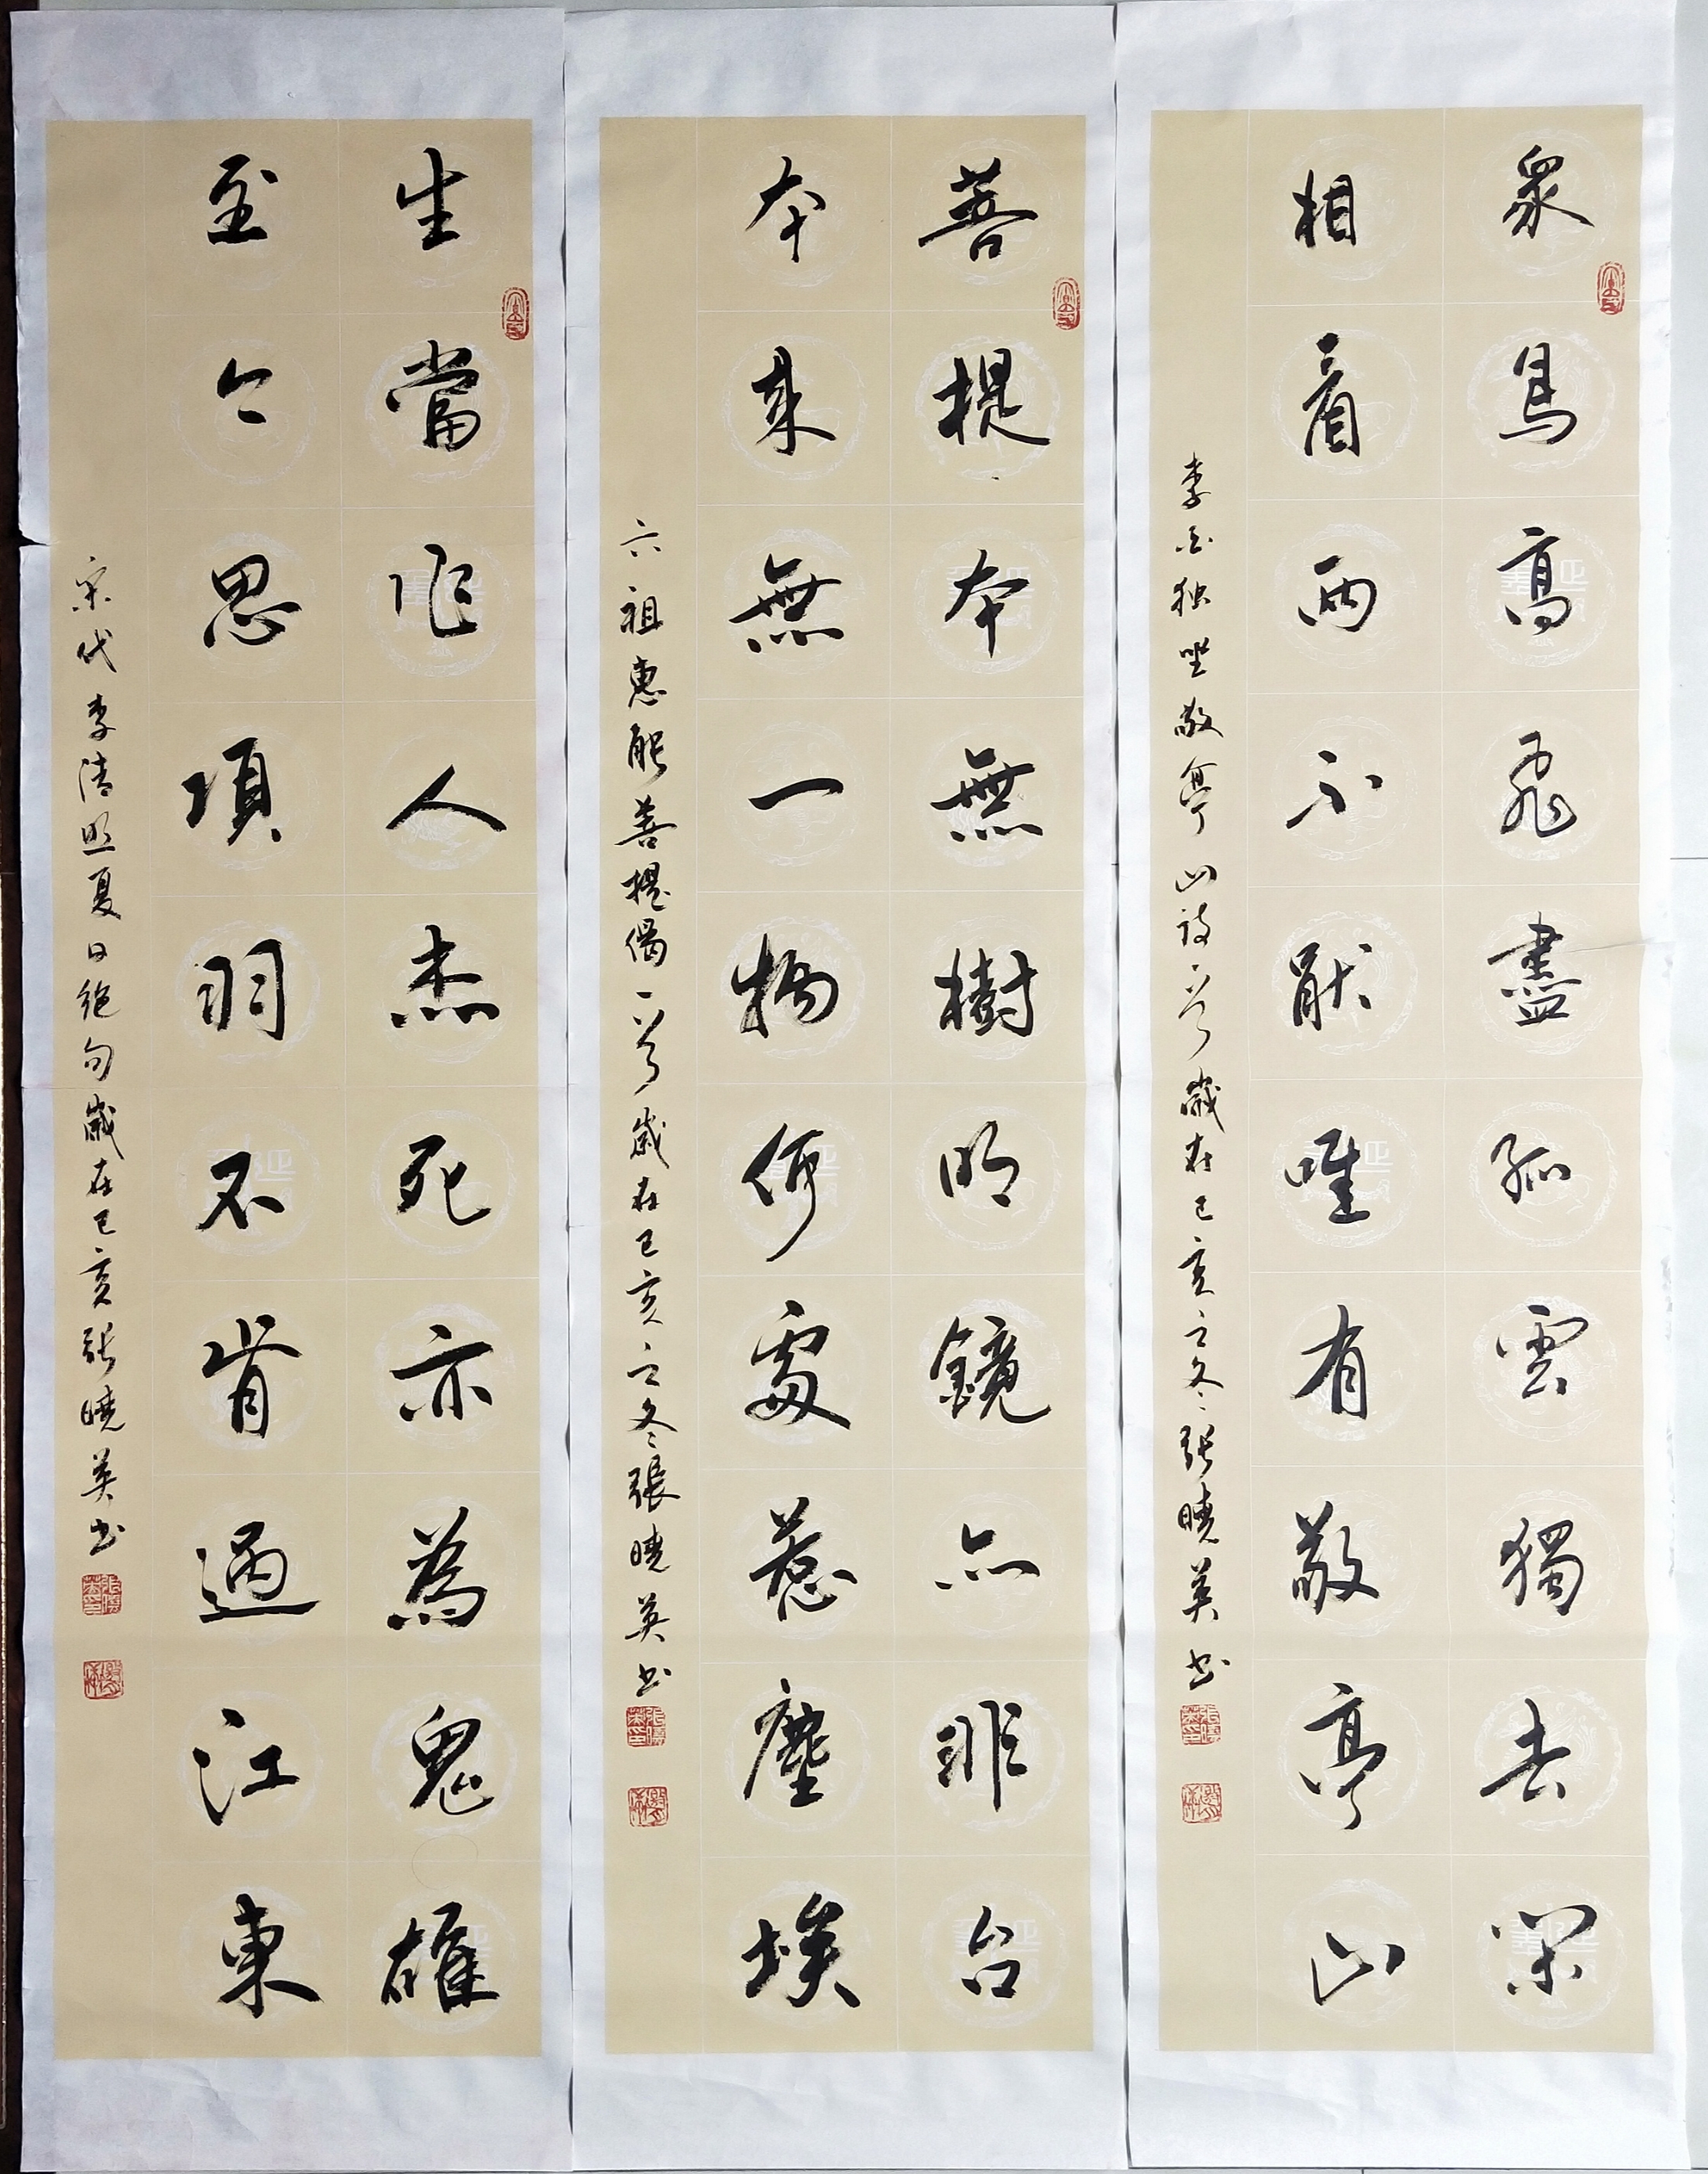 衆鳥高飛盡孤雲獨去閑
相看兩不厭唯有敬亭山
李白独坐敬亭山诗一首歲在己亥立冬張曉英书
菩提本無樹明鏡亦非台
本来無一物何處惹塵埃
六祖惠能菩提偈一首歲在己亥立冬張曉英书
生當作人杰死亦為鬼雄
至今思項羽不肯過江東
宋代李清照夏日绝句歲在己亥張曉英书